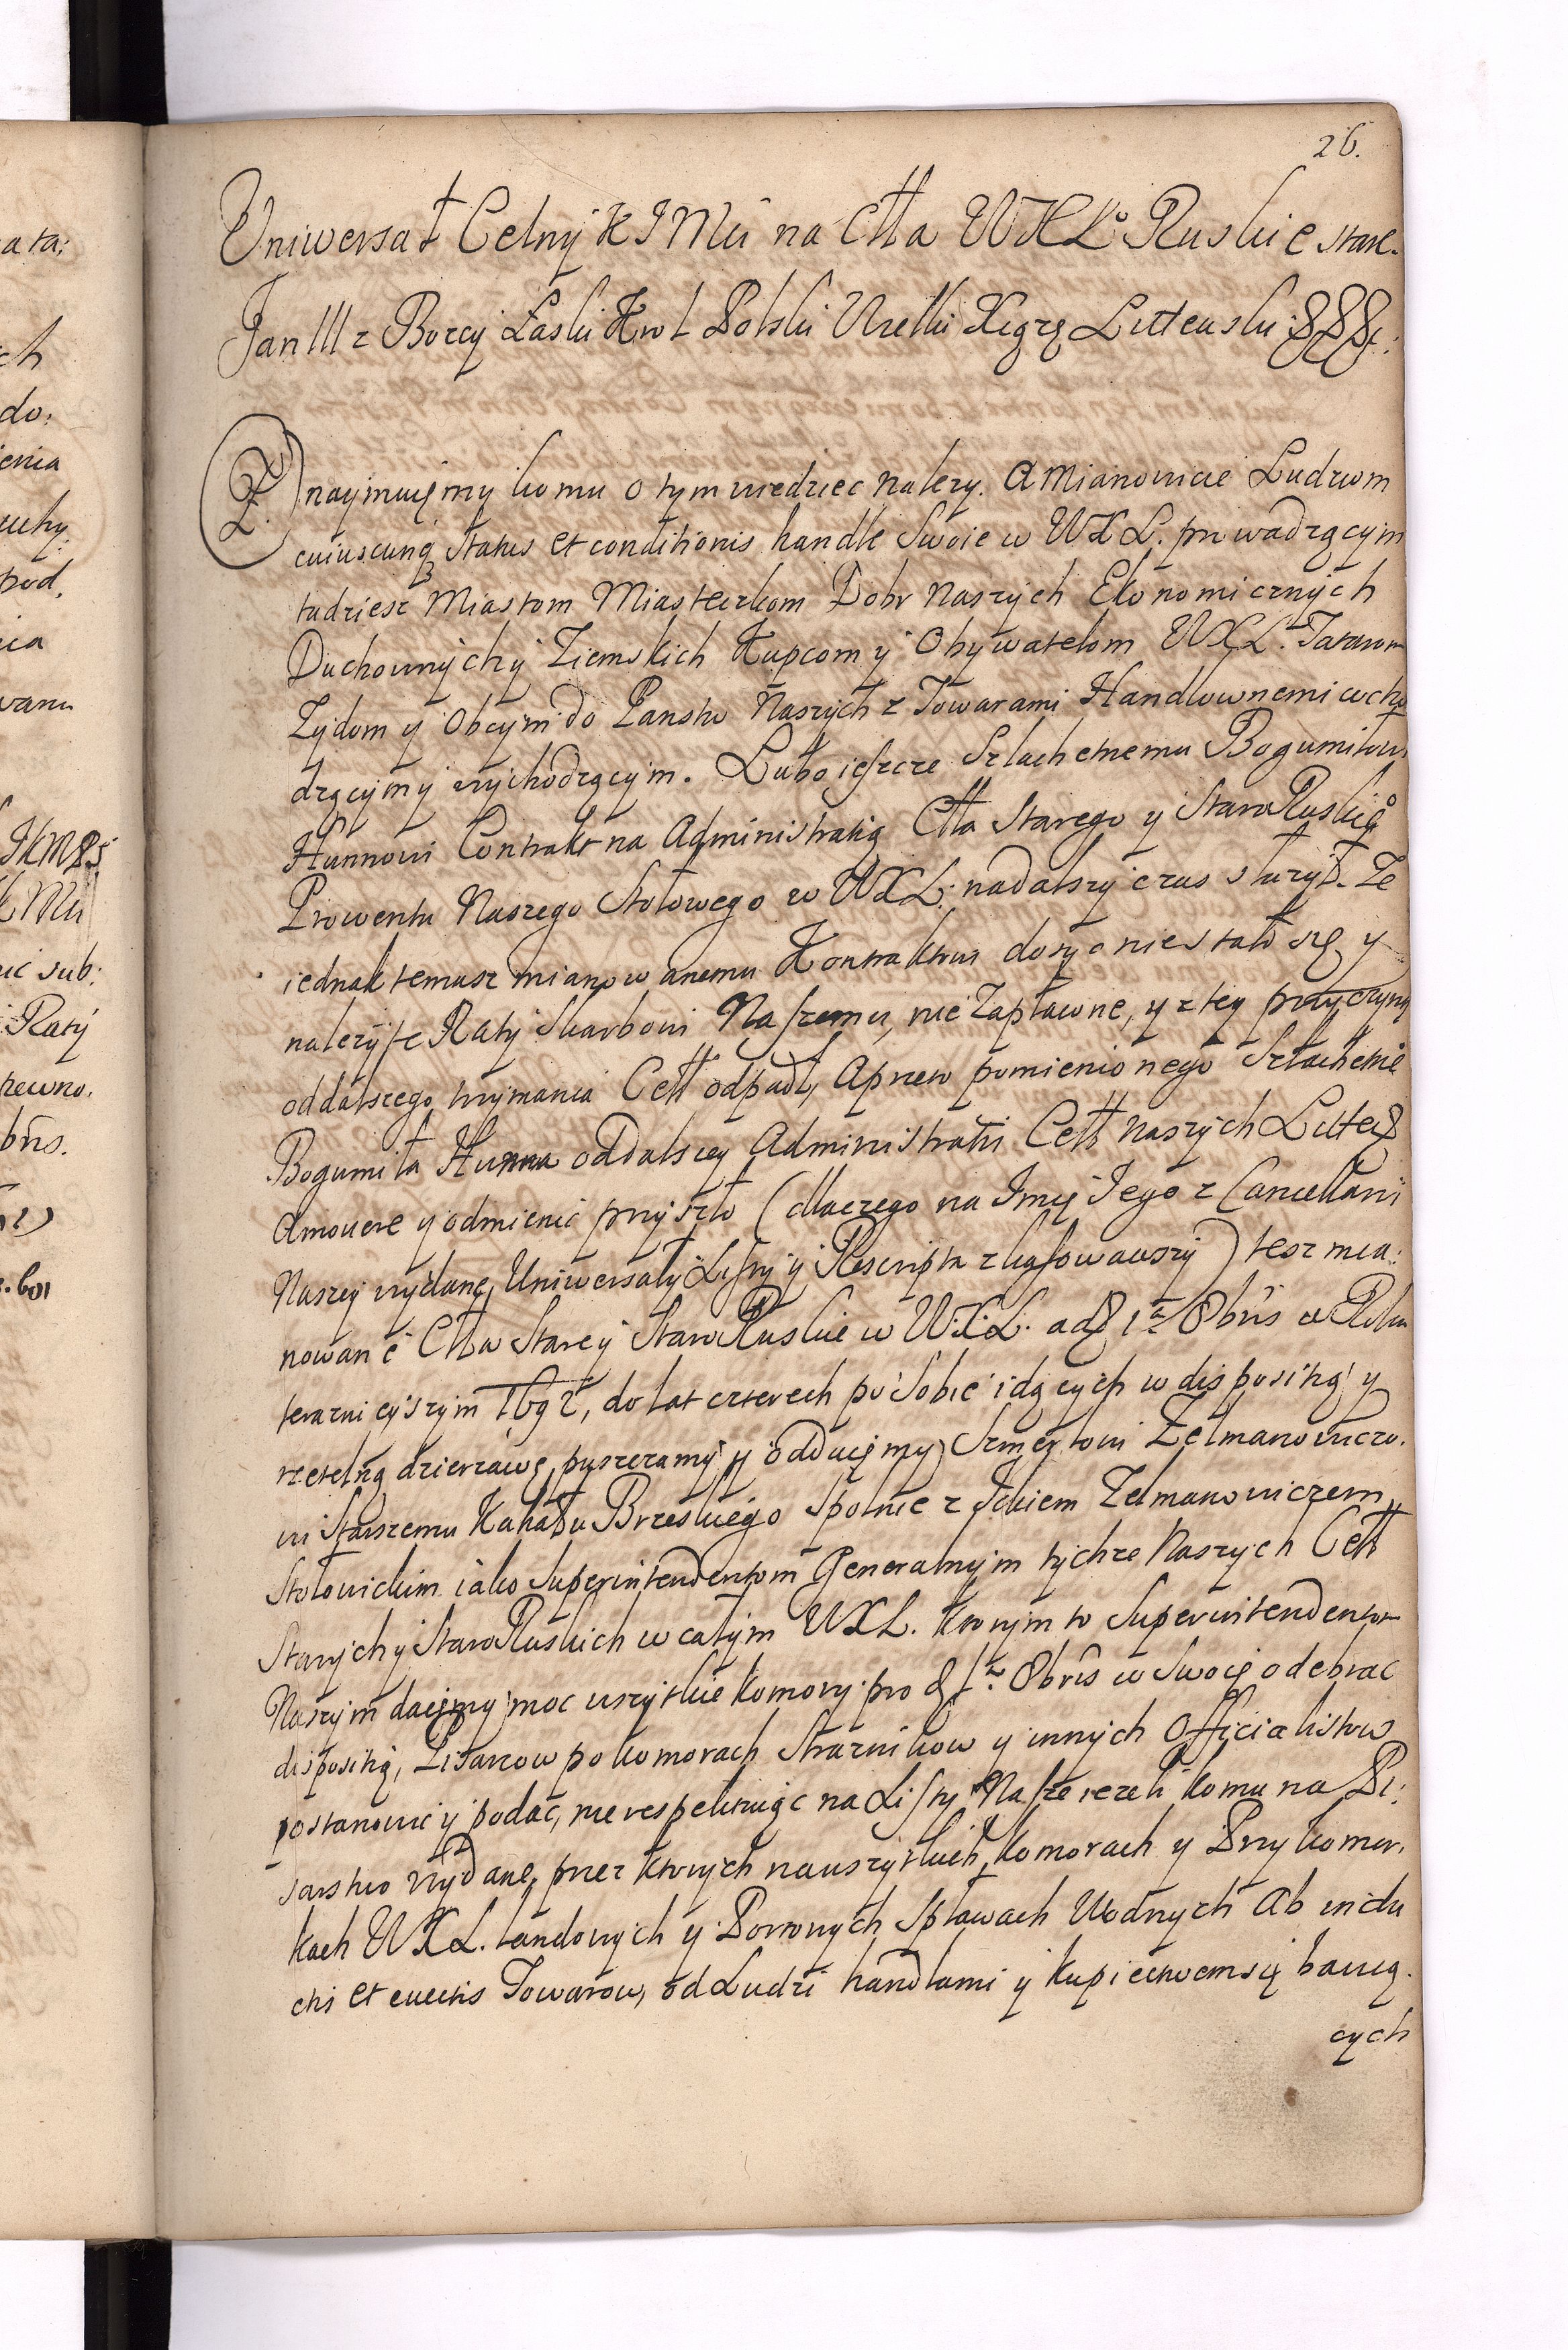 26.
Uniwersał Celny K J Mći na Cła WXLº Ruskie stare.
Jan III z Bozey Łaski Krol Polski Wielki Xiąze Littewski &&&:
Oznaymuięmy komu o tym wiedziec nalezy. A Mianowicie Ludziom
cuiuscunq Status et conditionis handle Swoie w WXL. prowadzącym
tudziesz Miastom Miasteczkom Dobr Naszych Ekonomicznych
Duchownych y Ziemskich Kupcom y Obywatelom WXL. Tatarom
Zydom y Obcym do Panstw Naszych z Towarami Handlownemi wcho
dzącym y wychodzącym. Lubo ieszcze Szlachetnemu Bogumiłowi
Hunnowi Contrakt na Administratią Cła Starego y StaroRuskiegº
Prowentu Naszego Stołowego w WXL: nadalszy czas słuzył. Ze
iednak temusz mianowanemu Kontraktwi dosyc nie stało się y
nalezyte Raty Skarbowi Naszemu, nie zapławne, y z tey przyczyny
oddalszego trzymania Ceł odpadł, Aprzeto pomienionego Szlachetnº
Bogumiła Hunna oddalszey Administratii Ceł naszych Littew
Amovere y odmienic przyszło (dlaczego na Imię Jego z Cancellarii
Naszey wydane Uniwersały Listy y Rescripta zkassowawszy) tesz mia:
nowane Cła Stare y StaroRuskie w W.X.L. ad 1ª 8bris w Roku
teraznieyszym 1692, do lat czterech po Sobie idących w dispositią y
rzetelną dzierzawę puszczamy y oddaięmy Szmerłowi Zelmanowiczo.
wi Starszemu Kahału Brzeskiego Spolnie z Ickiem Zelmanowiczem
Stołowickim iako Superintendentom Generalnym tychze Naszych Ceł
Starych y StaroRuskich w całym WXL. Ktorym to Superintendentom
Naszym daięmy moc wszytkie Komory pro 1ª 8bris w Swoię odebrac
dispositią, Pisarzow po komorach Straznikow y innych Officialistow
postanowic y podac, nie respektuiąc na Listy Nasze iezeli komu na Pi:
sarstwo wydane, przez ktorych na wszytkich Komorach y Przykomor.
kach WXL. Landowych y Portowych Spławach Wodnych Ab indu
ctis et evectis Towarow, od Ludzi handlami y kupiectwem się bawią.
cych